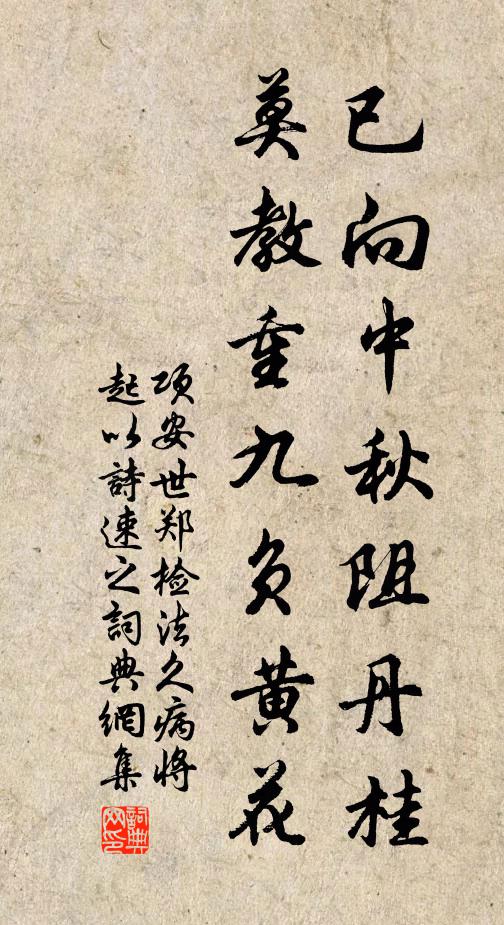 已向中秋阻丹桂
莫教重九负黄花
项安世郑检法久病将
起以詩速之詞典網集
詞典网印